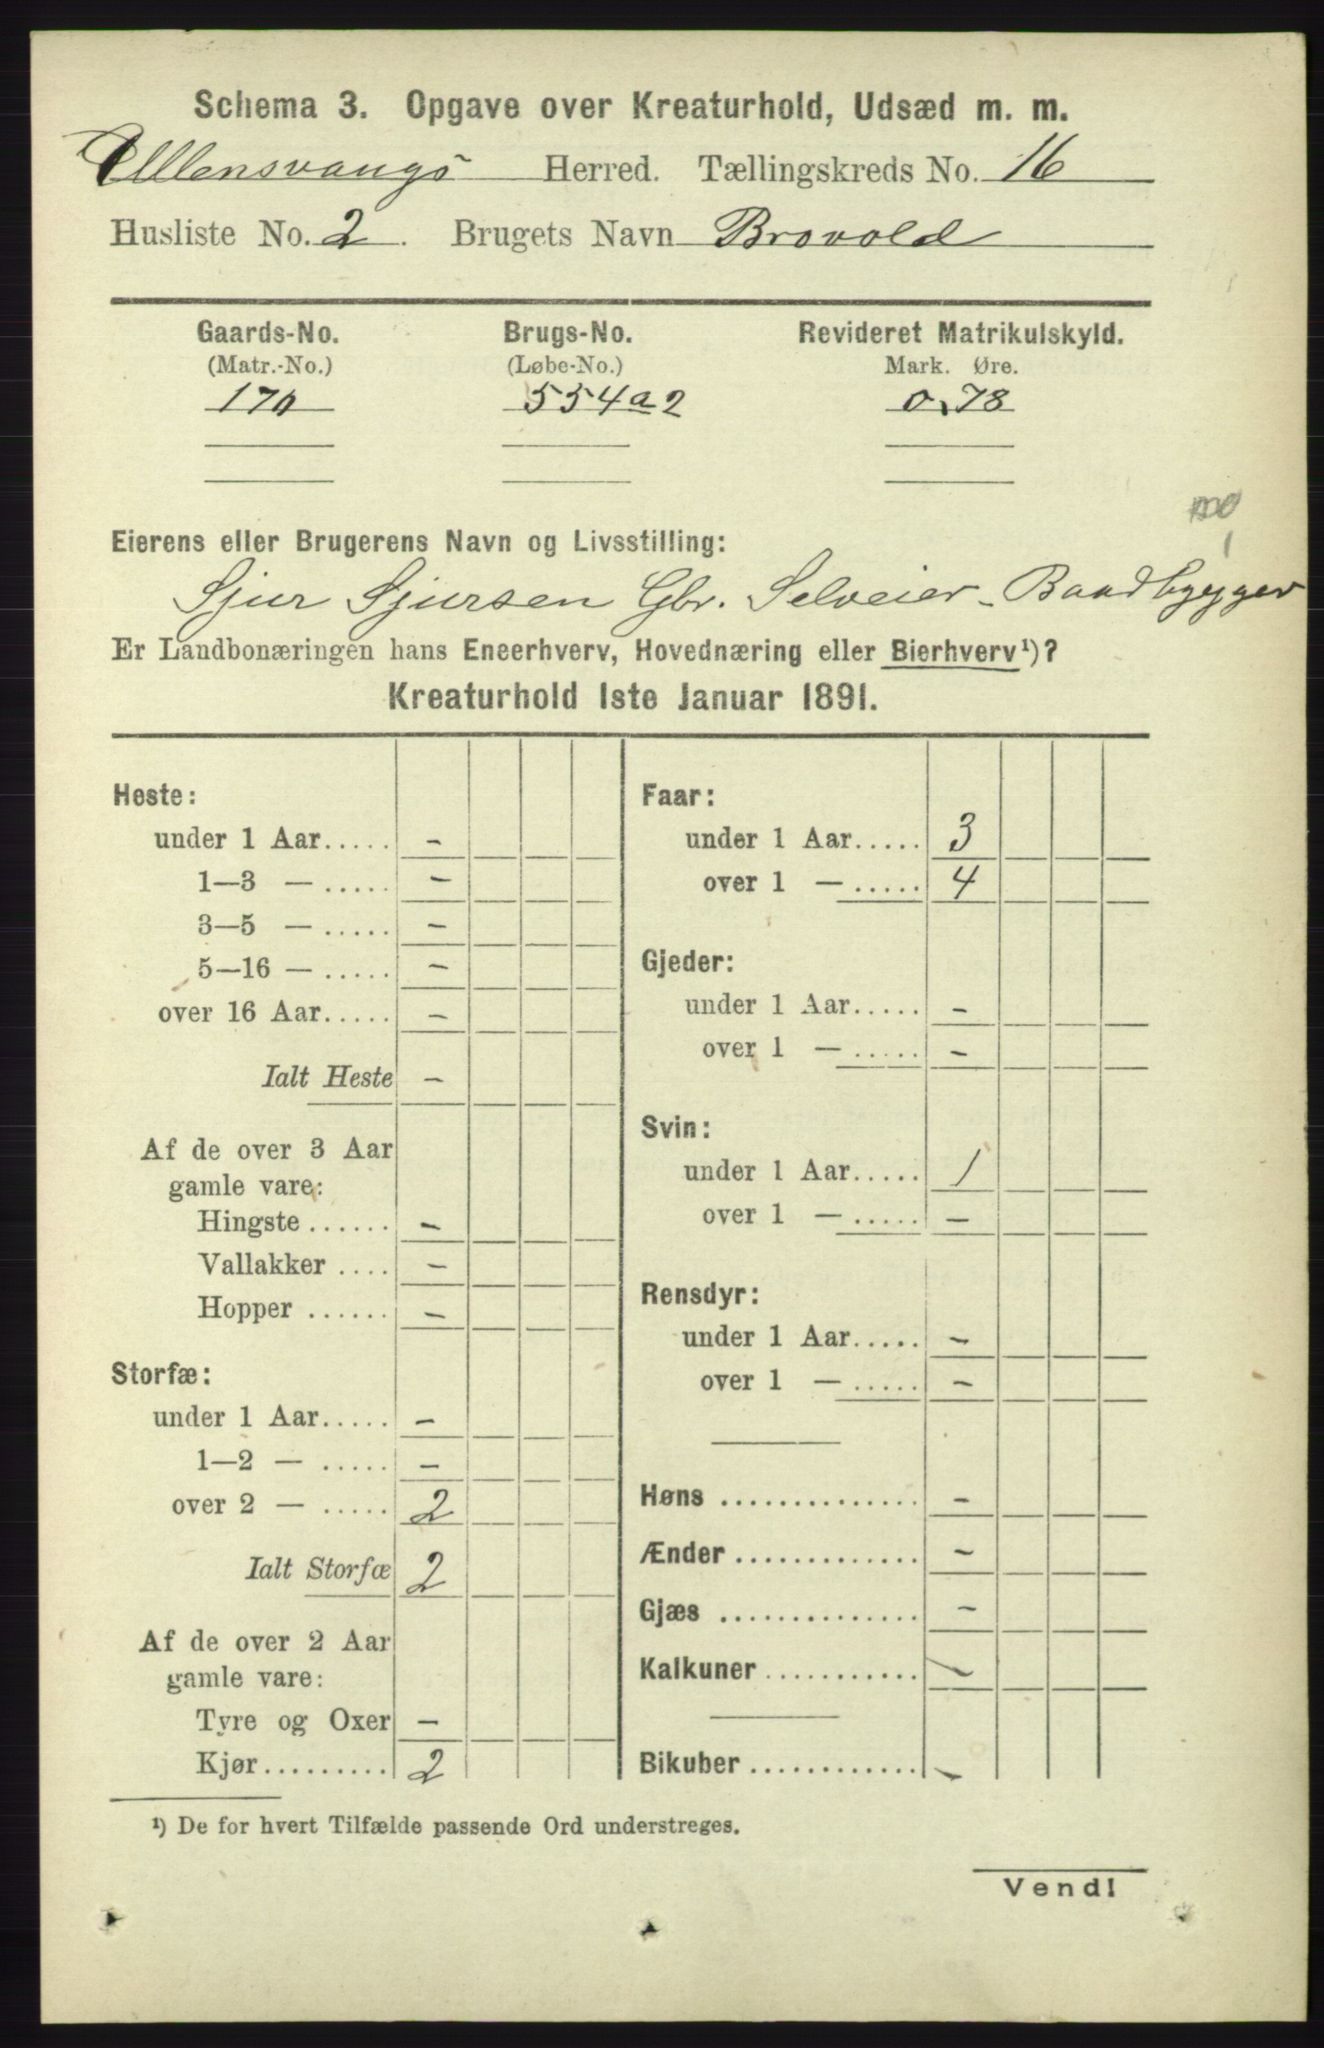 Schema 3. Opgave over Kreaturhold, Udsæd m. m.
Ullensvangs Herred. Tællingskreds No. 16
Husliste No. 2. Brugets Navn Brovold
Gaards-No. Brugs-No. Revideret Matrikulskyld.
(Matr.-No.) (Løbe-No.) Mark. Øre.
170 554a2 0.78
Eierens eller Brugerens Navn og Livsstilling:
Sjur Sjursen Gbr. Selveier-Baadbygger
Er Landbonæringen hans Eneerhverv, Hovednæring eller Bierhverv¹)?
Kreaturhold 1ste Januar 1891.
Heste:
under 1 Aar..... -
1—3 — ..... -
3—5 — ..... -
5—16 — ..... -
over 16 Aar..... -
Ialt Heste -
Af de over 3 Aar
gamle vare:
Hingste ...... -
Vallakker .... -
Hopper ...... -
Storfæ:
under 1 Aar..... -
1—2 — ..... -
over 2 — ..... 2
Ialt Storfæ 2
Af de over 2 Aar
gamle vare:
Tyre og Oxer -
Kjør......... 2
Faar:
under 1 Aar..... 3
over 1 — ..... 4
Gjeder:
under 1 Aar..... -
over 1 — ..... -
Svin:
under 1 Aar..... 1
over 1 — ..... -
Rensdyr:
under 1 Aar..... -
over 1 — ..... -
Høns .............. -
Ænder ............. -
Gjæs .............. -
Kalkuner........... -
Bikuber ............ -
¹) De for hvert Tilfælde passende Ord understreges.
Vend!